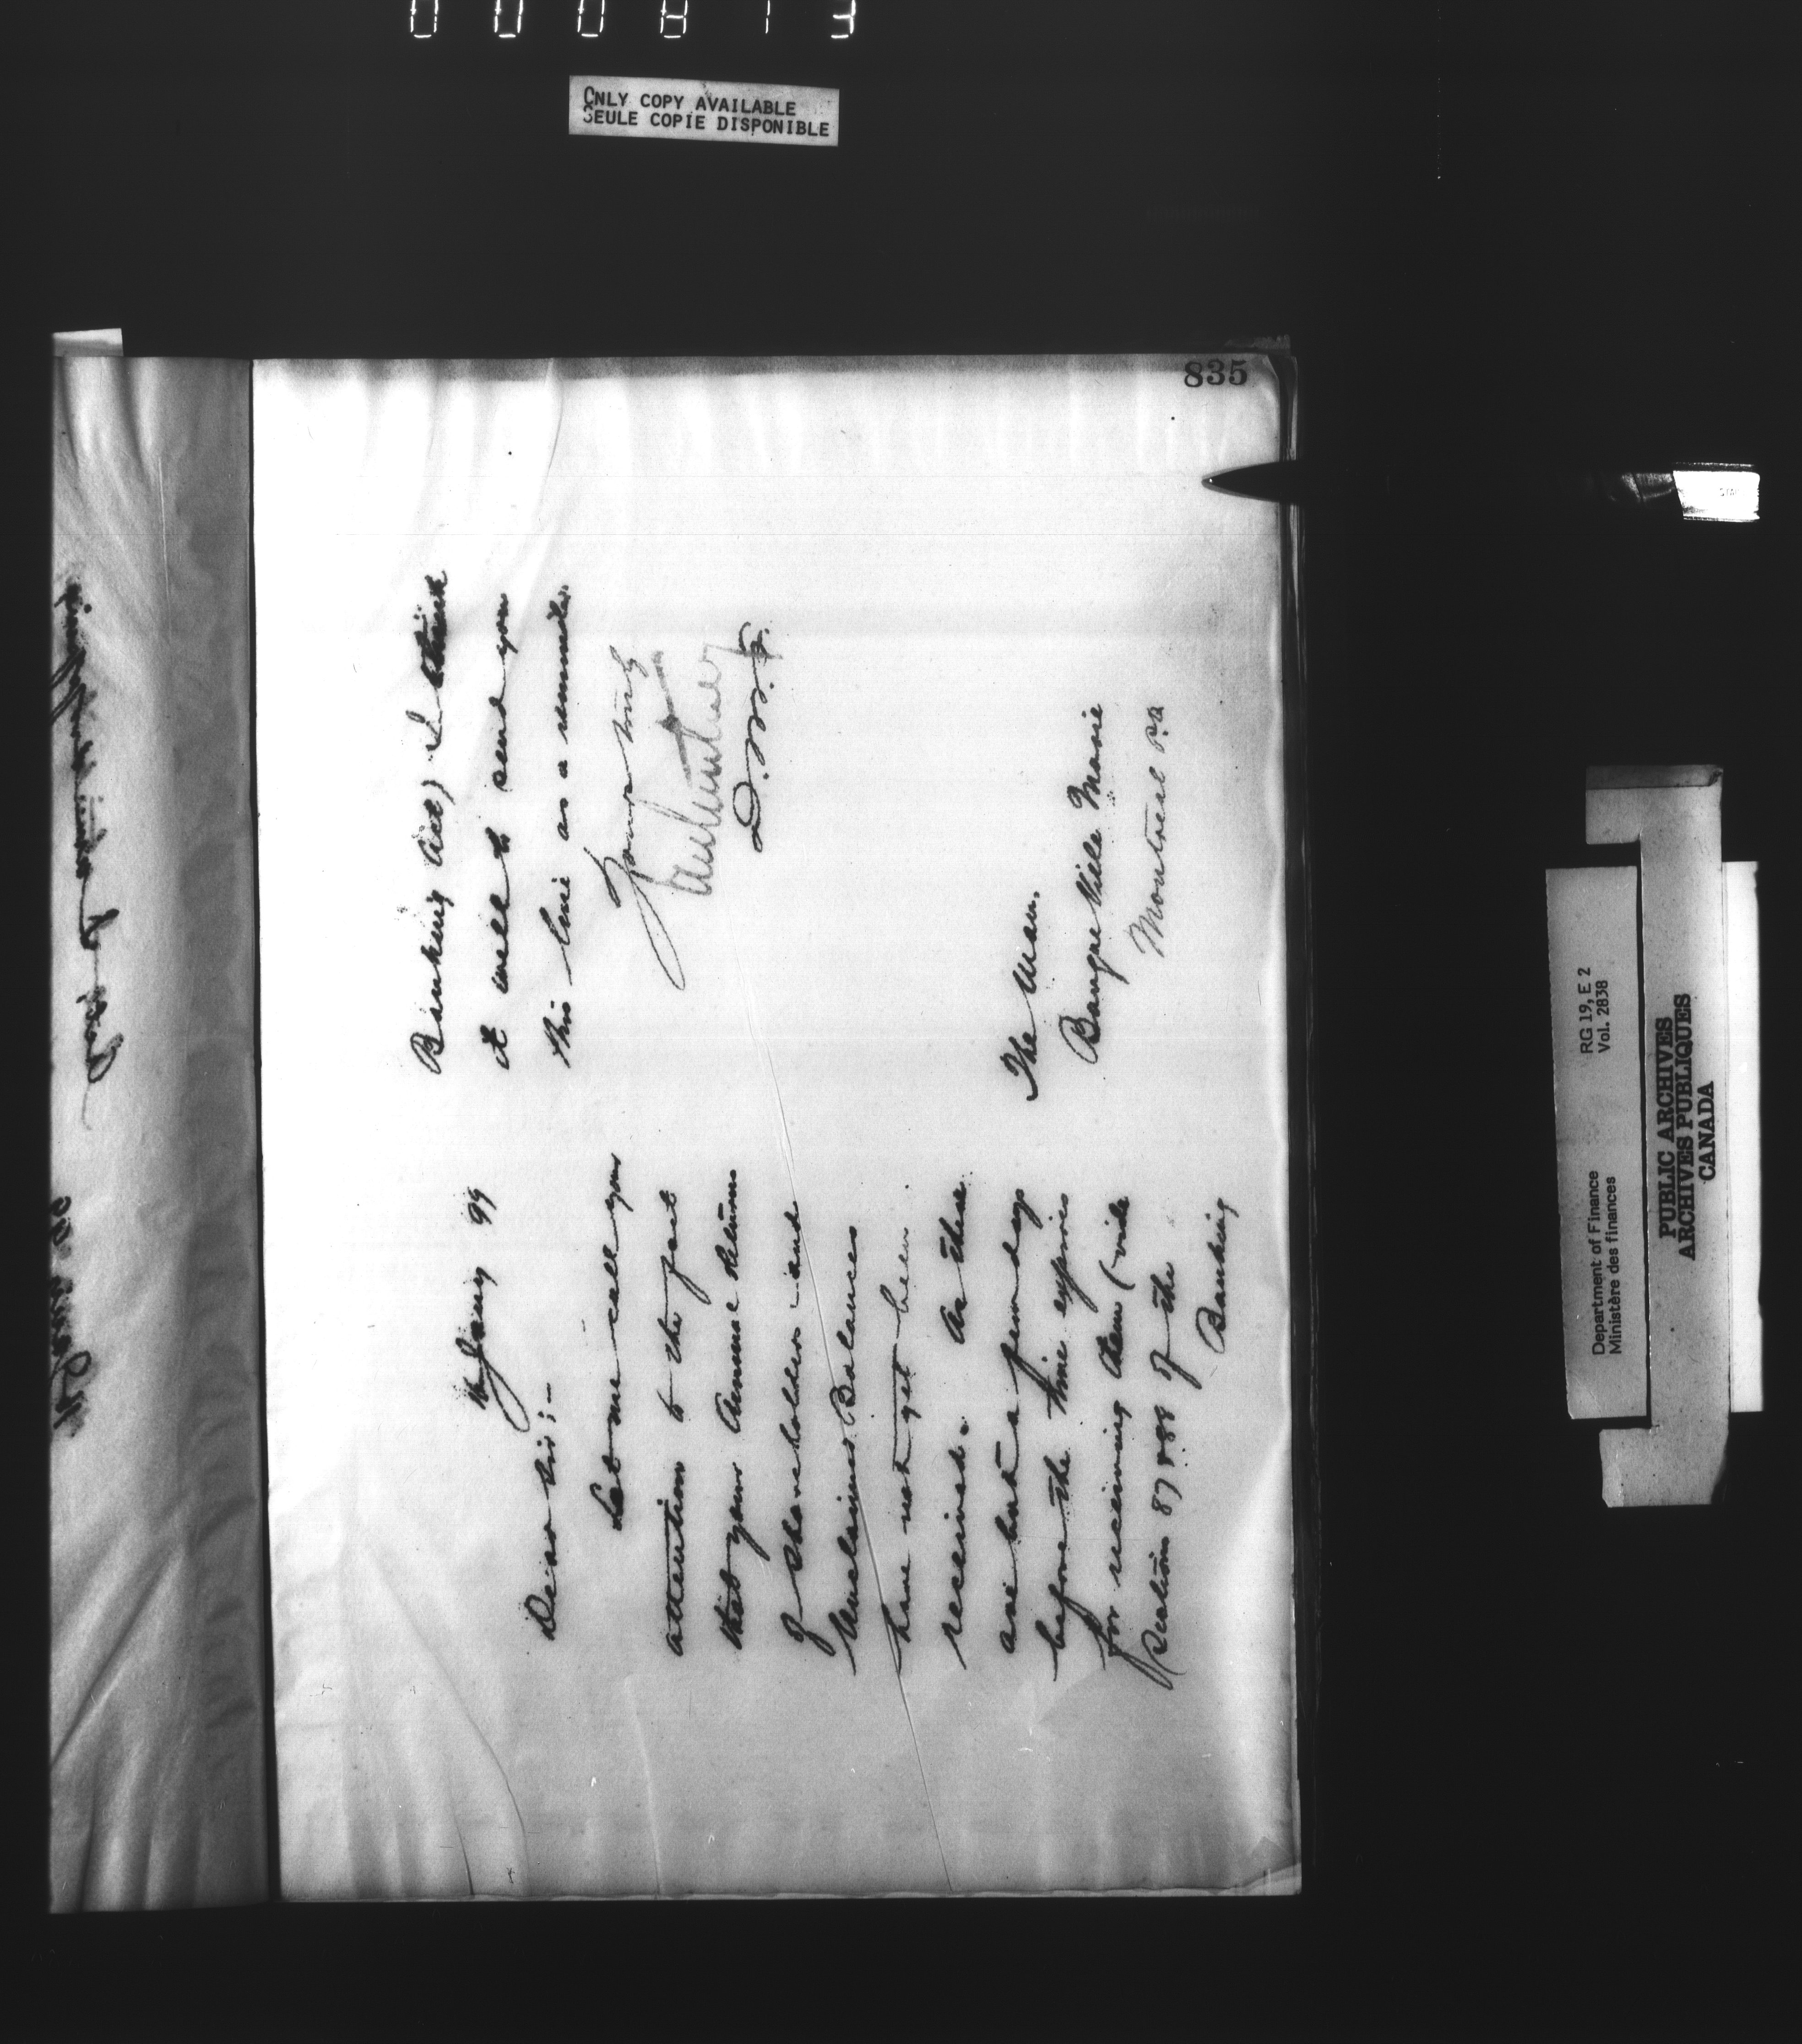 000813
ONLY COPY AVAILABLE
SEULE COPIE DISPONIBLE
835
Jany 99
Dear Sir:-
Let me call your
attention to the fact
that your Annual Returns
of Shareholders and
Unclaimed Balances
have not yet been
received. As there
are but a few days
before the time expires
for receiving them (vide
Section 87 & 88 of the
Banking
Banking Act) I think
it well to send you
this line as a reminder.
Yours truly
D.M.F.
The Man.
Banque Ville Marie
Montreal P.Q
Department of Finance
Ministère des finances
RG 19, E 2
Vol. 2838
PUBLIC ARCHIVES
ARCHIVES PUBLIQUES
CANADA